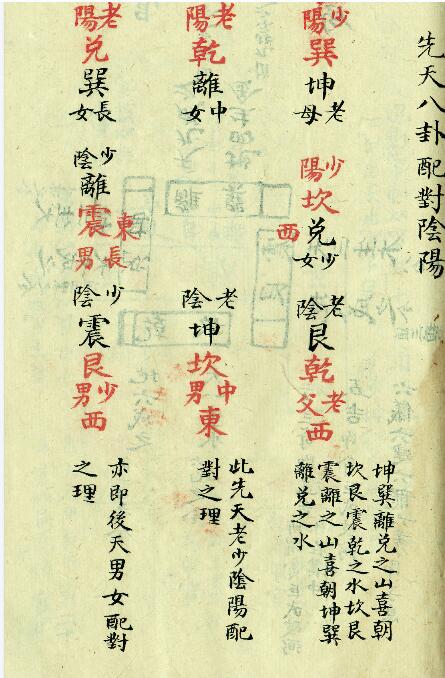 先天八卦配對陰陽
少陽巽坤老母
少陽坎兌西少女
老陰艮乾老父西
坤巽離兌之山喜朝
坎艮震乾之水坎艮
震離之山喜朝坤巽
離兌之水
老陽乾離中女
老陰坤坎中男東
此先天老少陰陽配
對之理
老陽兌巽長女
少陰離震東長男
少陰震艮少男西
亦即後天男女配對
之理